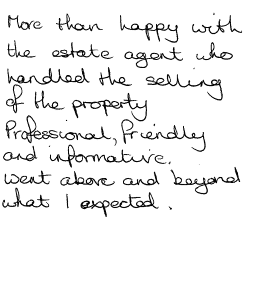 More than happy with
the estate agent who
handled the selling
of the property
Professional, friendly
and informative.
Went above and beyond
what I expected.